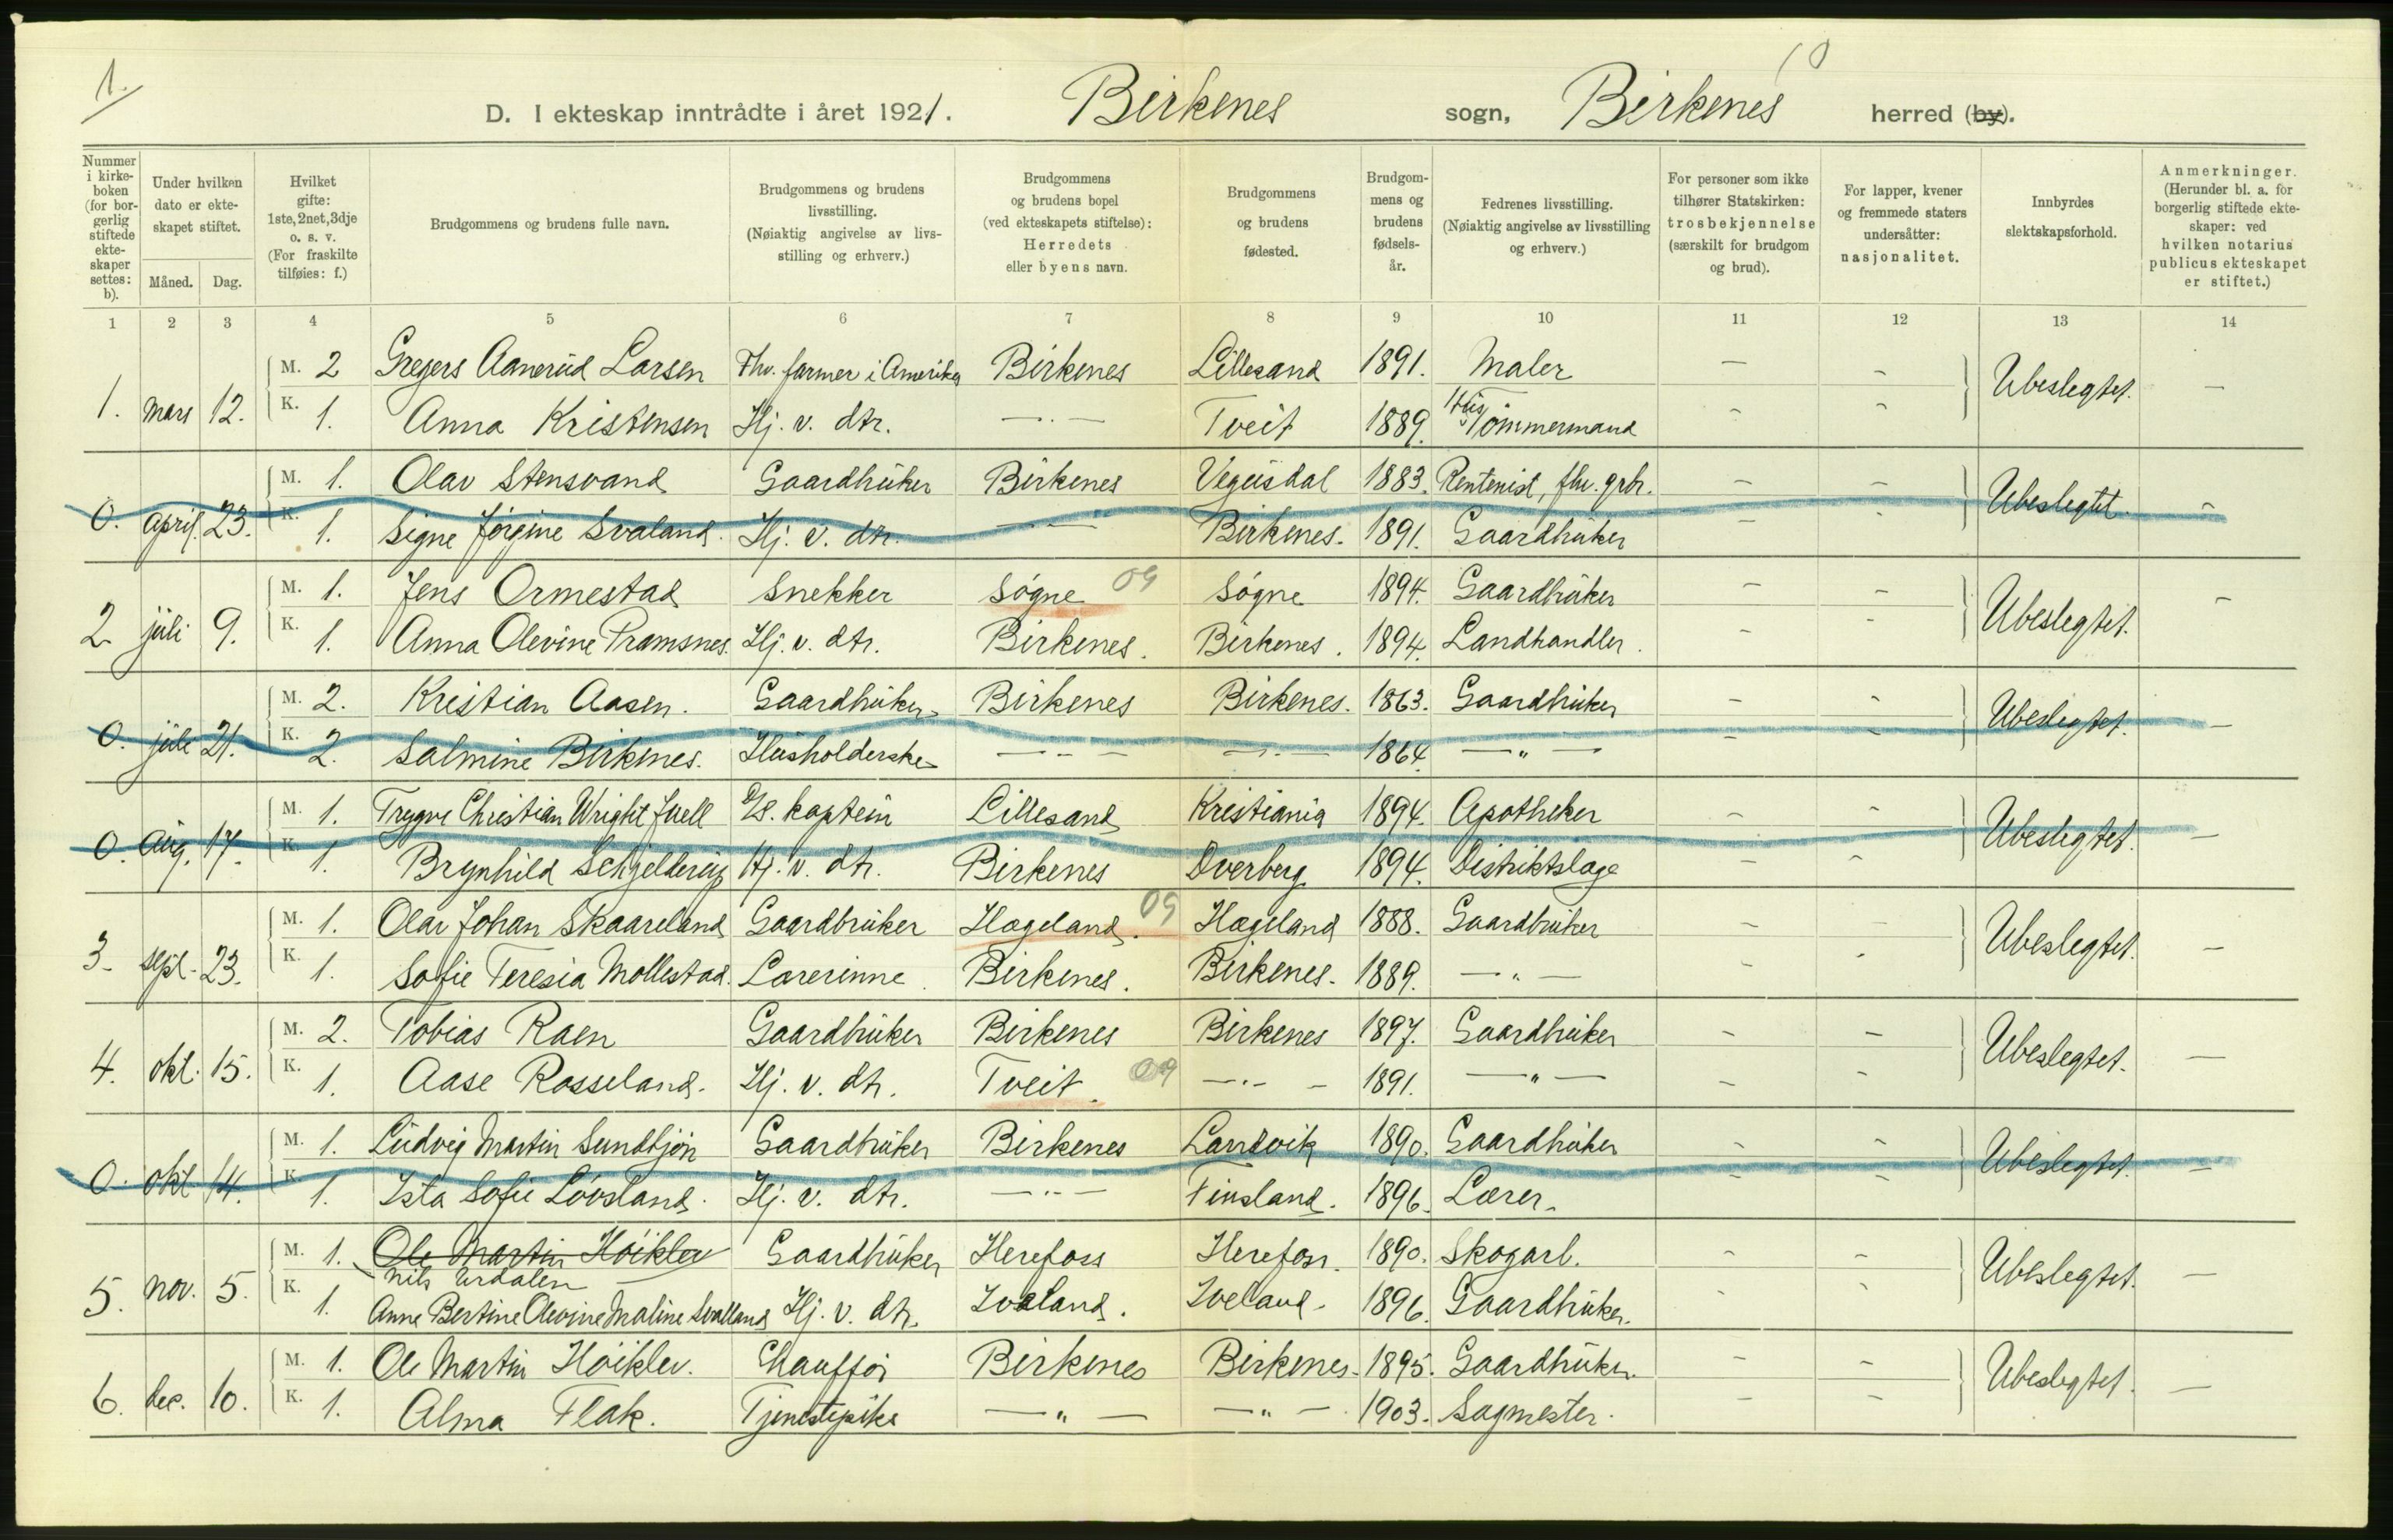 1.
10
D. I ekteskap inntrådte i året 1921. Birkenes sogn, Birkenes herred (by).
Nummer i kirkeboken (for borgerlig stiftede ekteskaper settes: b).
Under hvilken dato er ekteskapet stiftet.
Måned. Dag.
Hvilket gifte: 1ste, 2net, 3dje o. s. v. (For fraskilte tilføies: f.)
Brudgommens og brudens fulle navn.
Brudgommens og brudens livsstilling. (Nøiaktig angivelse av livsstilling og erhverv.)
Brudgommens og brudens bopel (ved ekteskapets stiftelse): Herredets eller byens navn.
Brudgommens og brudens fødested.
Brudgommens og brudens fødselsår.
Fedrenes livsstilling. (Nøiaktig angivelse av livsstilling og erhverv.)
For personer som ikke tilhører Statskirken: trosbekjennelse (særskilt for brudgom og brud).
For lapper, kvener og fremmede staters undersåtter: nasjonalitet.
Innbyrdes slektskapsforhold.
Anmerkninger. (Herunder bl. a. for borgerlig stiftede ekteskaper: ved hvilken notarius publicus ekteskapet er stiftet.)
1 2 3 4 5 6 7 8 9 10 11 12 13 14
M. 2 Gregers Aanerud Larsen Fhv. farmer i Amerika Birkenes Lillesand 1891. Maler — — Ubeslegtet. —
1. mars 12. K. 1. Anna Kristensen Hj. v. dtr. — " — Tveit 1889. Hus Tømmermand - -
M. 1. Olav Stensvand Gaardbruker Birkenes Vegusdal 1883. Rentenist, fhv. grbr. — — Ubeslegtet. —
0. april. 23. K. 1. Signe Jørgine Svaland. Hj. v. dtr. — " — Birkenes. 1891. Gaardbruker — -
M. 1. Jens Ormestad Snekker Søgne 09 Søgne 1894. Gaardbruker — — Ubeslegtet. —
2 juli 9. K. 1. Anna Olevine Pramsnes. Hj. v. dtr. Birkenes. Birkenes. 1894. Landhandler. - -
M. 2. Kristian Aasen. Gaardbruker Birkenes Birkenes. 1863. Gaardbruker — - Ubeslegtet. —
0. juli 21. K. 2. Salmine Birkenes. Husholderske — " — — " — 1864. — " — - -
M. 1. Trygve Christian Wright Juell D/S. kaptein Lillesand Kristiania 1894. Apotheker — - Ubeslegtet. —
0. Aug. 17. K. 1. Brynhild Schjelderup Hj. v. dtr. Birkenes Dverberg 1894. Distriktslæge — -
M. 1. Olav Johan Skaareland Gaardbruker Hægeland. 09 Hægeland 1888. Gaardbruker — — Ubeslegtet. —
3. sept. 23. K. 1. Sofie Teresia Mollestad. Lærerinne. Birkenes. Birkenes. 1889. — " — - -
M. 2. Tobias Raen Gaardbruker Birkenes Birkenes 1897. Gaardbruker — — Ubeslegtet. —
4. okt. 15. K. 1. Aase Rosseland. Hj. v. dtr. Tveit. 09 — " — 1891. — " — — -
M. 1. Ludvig Martin Sundtjøn Gaardbruker Birkenes Landvik 1890. Gaardbruker - - Ubeslegtet. —
0. okt 14. K. 1. Ista Sofie Løvsland. Hj. v. dtr. — " — Finsland. 1896. Lærer. - -
M. 1. Ole Martin Høiklev Gaardbruker Herefoss Herefoss. 1890. Skogarb. - — Ubeslegtet. —
Nils Urdalen
5. nov. 5. K. 1. Anne Bertine Olevine Maline Svalland Hj. v. dtr. Iveland. Iveland. 1896. Gaardbruker. - -
M. 1. Ole Martin Høiklev. Chauffør Birkenes Birkenes. 1895. Gaardbruker. — — Ubeslegtet. —
6. dec. 10. K. 1. Alma Flak. Tjenestepike — " — — " — 1903. Sagmester. — —